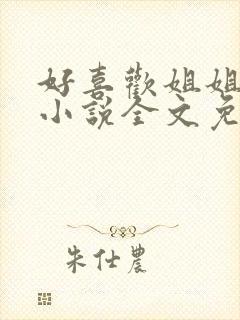 好喜歡姐姐
小說全文免
朱仕農